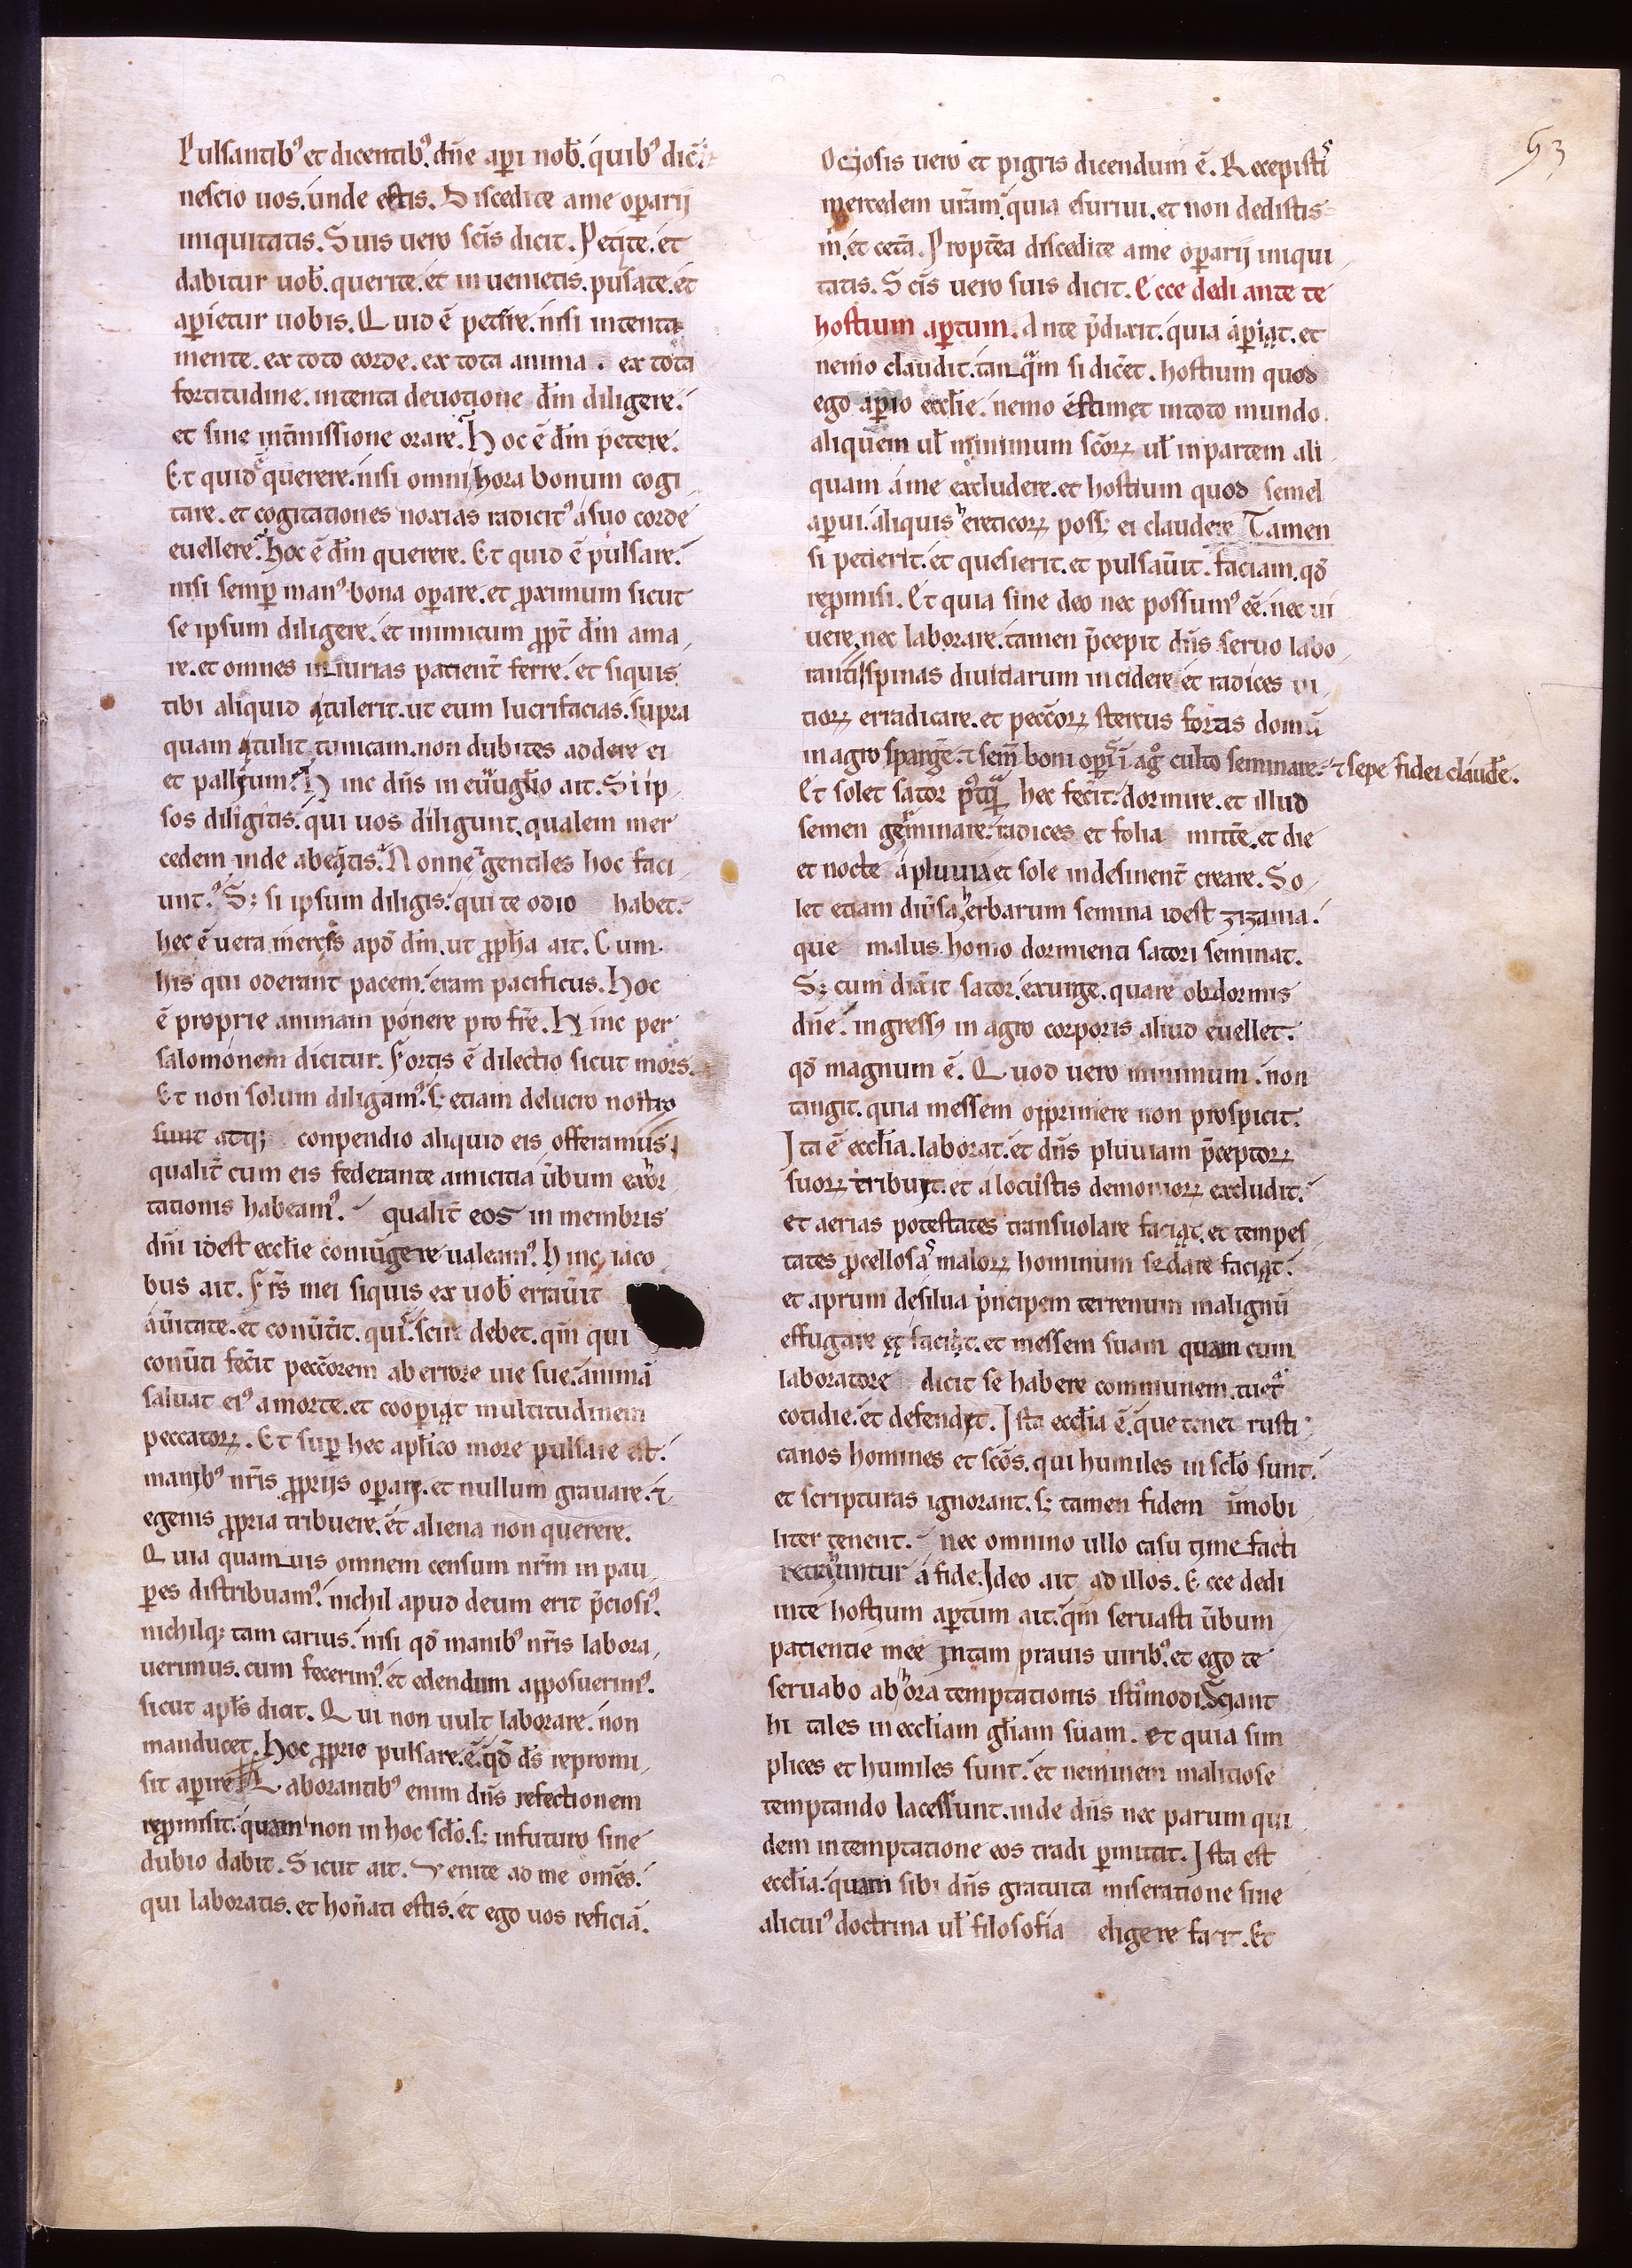 53
Pulsantibꝰ et dicentibꝰ. dn̄e aperi nob̄. quibꝰ dic̄.
nescio uos. unde estis. Discedite ame op̄arij
iniquitatis. Suis uero sc̄is dicit. Petite. et
dabitur uob̄. querite. et in uenietis. pulsate. et
ap̄ietur uobis. Quid ē petere. nisi intenta
mente. ex toto corde. ex tota anima. ex tota
fortitudine. intenta deuotione dm̄ diligere.
et sine int̄missione orare. Hoc ē dm̄ petere.
Et quid querere. nisi omni hora bonum cogi
tare. et cogitationes noxias radicitꝰ asuo corde
euellere. hoc ē dm̄ querere. Et quid ē pulsare.
nisi semp̄ manꝰ bona op̄are. et ꝓximum sicut
se ipsum diligere. et inimicum ꝓpt̄ dm̄ ama
re. et omnes iniurias patient̄ ferre. et siquis
tibi aliquid tulerit. ut eum lucrifacias. supra
quam tulit tunicam. non dubites addere ei
et pallium. Hinc dn̄s in euuḡlio ait. Si ip
sos diligitis. qui uos diligunt. qualem mer
cedem inde abeatis. Nonne gentiles hoc faci
unt. S; si ipsum diligis. qui te odio habet.
hec ē uera merces apd̄ dm̄. ut ꝓph̄a ait. Cum
his qui oderant pacem. eram pacificus. Hoc
ē proprie animam ponere pro fr̄e. Hinc per
salomonem dicitur. Fortis ē dilectio sicut mors.
Et non solum diligamꝰ. s; etiam delucro nostro
sunt atq; conpendio aliquid eis offeramus.
qualit̄ cum eis federante amicitia ūbum exhor
tationis habeamꝰ. qualit̄ eos in membris
dn̄i idest eccl̄ie coniungere ualeamꝰ. Hinc iaco
bus ait. Fr̄s mei siquis ex uob̄ errau̅it
au̅itate. et conu̅tit. quis. scire debet. qm̄ qui
conu̅ti fec̄it pecc̄orem ab errore uie sue. animā
saluat eiꝰ amorte. et coop̄iat multitudinem
peccatoꝝ. Et sup̄ hec apl̄ico more pulsare est.
manibꝰ nr̄is ꝓprijs op̄ari. et nullum grauare. ⁊
egenis ꝓpria tribuere. et aliena non querere.
Quia quamuis omnem censum nr̄m in pau
p̄es distribuamꝰ. nichil apud deum erit p̄ciosiꝰ.
nichilq; tam carius. nisi qd̄ manibꝰ nr̄is labora
uerimus. cum fecerimꝰ. et edendum apposuerimꝰ.
sicut apl̄s dicit. Qui non uult laborare. non
manducet. hoc ꝓprie pulsare. ē. qd̄ ds̄ repromi
sit ap̄ire. Laborantibꝰ enim dn̄s refectionem
reꝓmisit. quam non in hoc scl̄o. s; infuturo sine
dubio dabit. Sicut ait. Venite ad me om̄es.
qui laboratis. et hon̄ati estis. et ego uos reficiā.
Ocyosis uero et pigris dicendum ē. Recepistis
mercedem ur̄am. quia esuriui. et non dedistis
m̄. et cetā. Propt̄ea discedite ame op̄arij iniqui
tatis. Sc̄is uero suis dicit. Ecce dedi ante te
hostium ap̄tum. Ante p̄dixit. quia ap̄iat. et
nemo claudit. tanquam si dic̄et. hostium quod
ego ap̄io eccl̄ie. nemo estimet intoto mundo
aliquem ul̄ minimum sc̄oꝝ ul̄ inpartem ali
quam ame excludere. et hostium quod semel
ap̄ui. aliquis hereticoꝝ poss; ei claudere Tamen
si petierit. et quesierit. et pulsau̅it. faciam. qd̄
reꝓmisi. Et quia sine deo nec possumꝰ eē. nec ui
uere. nec laborare. tamen p̄cepit dn̄s seruo labo
ranti spinas diuitiarum incidere et radices ui
tioꝝ erradicare. et pecc̄oꝝ stercus foras domū
in agro sparḡe. ⁊ sem̄ boni op̄is ī agro culto seminare. ⁊ sepe fidei claud̄e.
Et solet sator postquam hec fec̄it. dormire. et illud
semen germinare. radices et folia mitt̄e. et die
et nocte apluuia et sole indesinent̄ creare. So
let etiam diu̅sa herbarum semina idest zizania.
que malus homo dormienti satori seminat.
S; cum dix̄it sator. exurge. quare obdormis
dn̄e. ingressꝰ in agro corporis aliud euellet.
qd̄ magnum ē. Quod uero minimum. non
tangit. quia messem opprimere non prospicit.
Ita ē eccl̄ia. laborat. et dn̄s pluuiam p̄ceptoꝝ
suoꝝ tribuit. et alocustis demonioꝝ excludit.
et aerias potestates transuolare faciat. et tempes
tates ꝓcellosas maloꝝ hominum sedare faciat.
et aprum desilua p̄ncipem terrenum malignū
effugare faciat. et messem suam quam cum
laboratore dicit se habere communem. tuetur
cotidie. et defendit. Ista eccl̄ia ē. que tenet rusti
canos homines et sc̄os. qui humiles in scl̄o sunt.
et scripturas ignorant. s; tamen fidem īmobi
liter tenent. nec omnino ullo casu timefacti
retrahuntur a fide. Ideo ait ad illos. Ecce dedi
inte hostium ap̄tum ait. qm̄ seruasti u̅bum
patientie mee intam prauis uiribꝰ. et ego te
seruabo abhora temptationis istimodi. Sciant
hi tales in eccl̄iam gl̄iam suam. et quia sim
plices et humiles sunt. et neminem malitiose
temptando lacessunt. inde dn̄s nec parum qui
dem intemptatione eos tradi p̄mittit. Ista est
eccl̄ia. quam sibi dn̄s gratuita miseratione sine
alicuiꝰ doctrina ul̄ filosofia eligere facit. Et